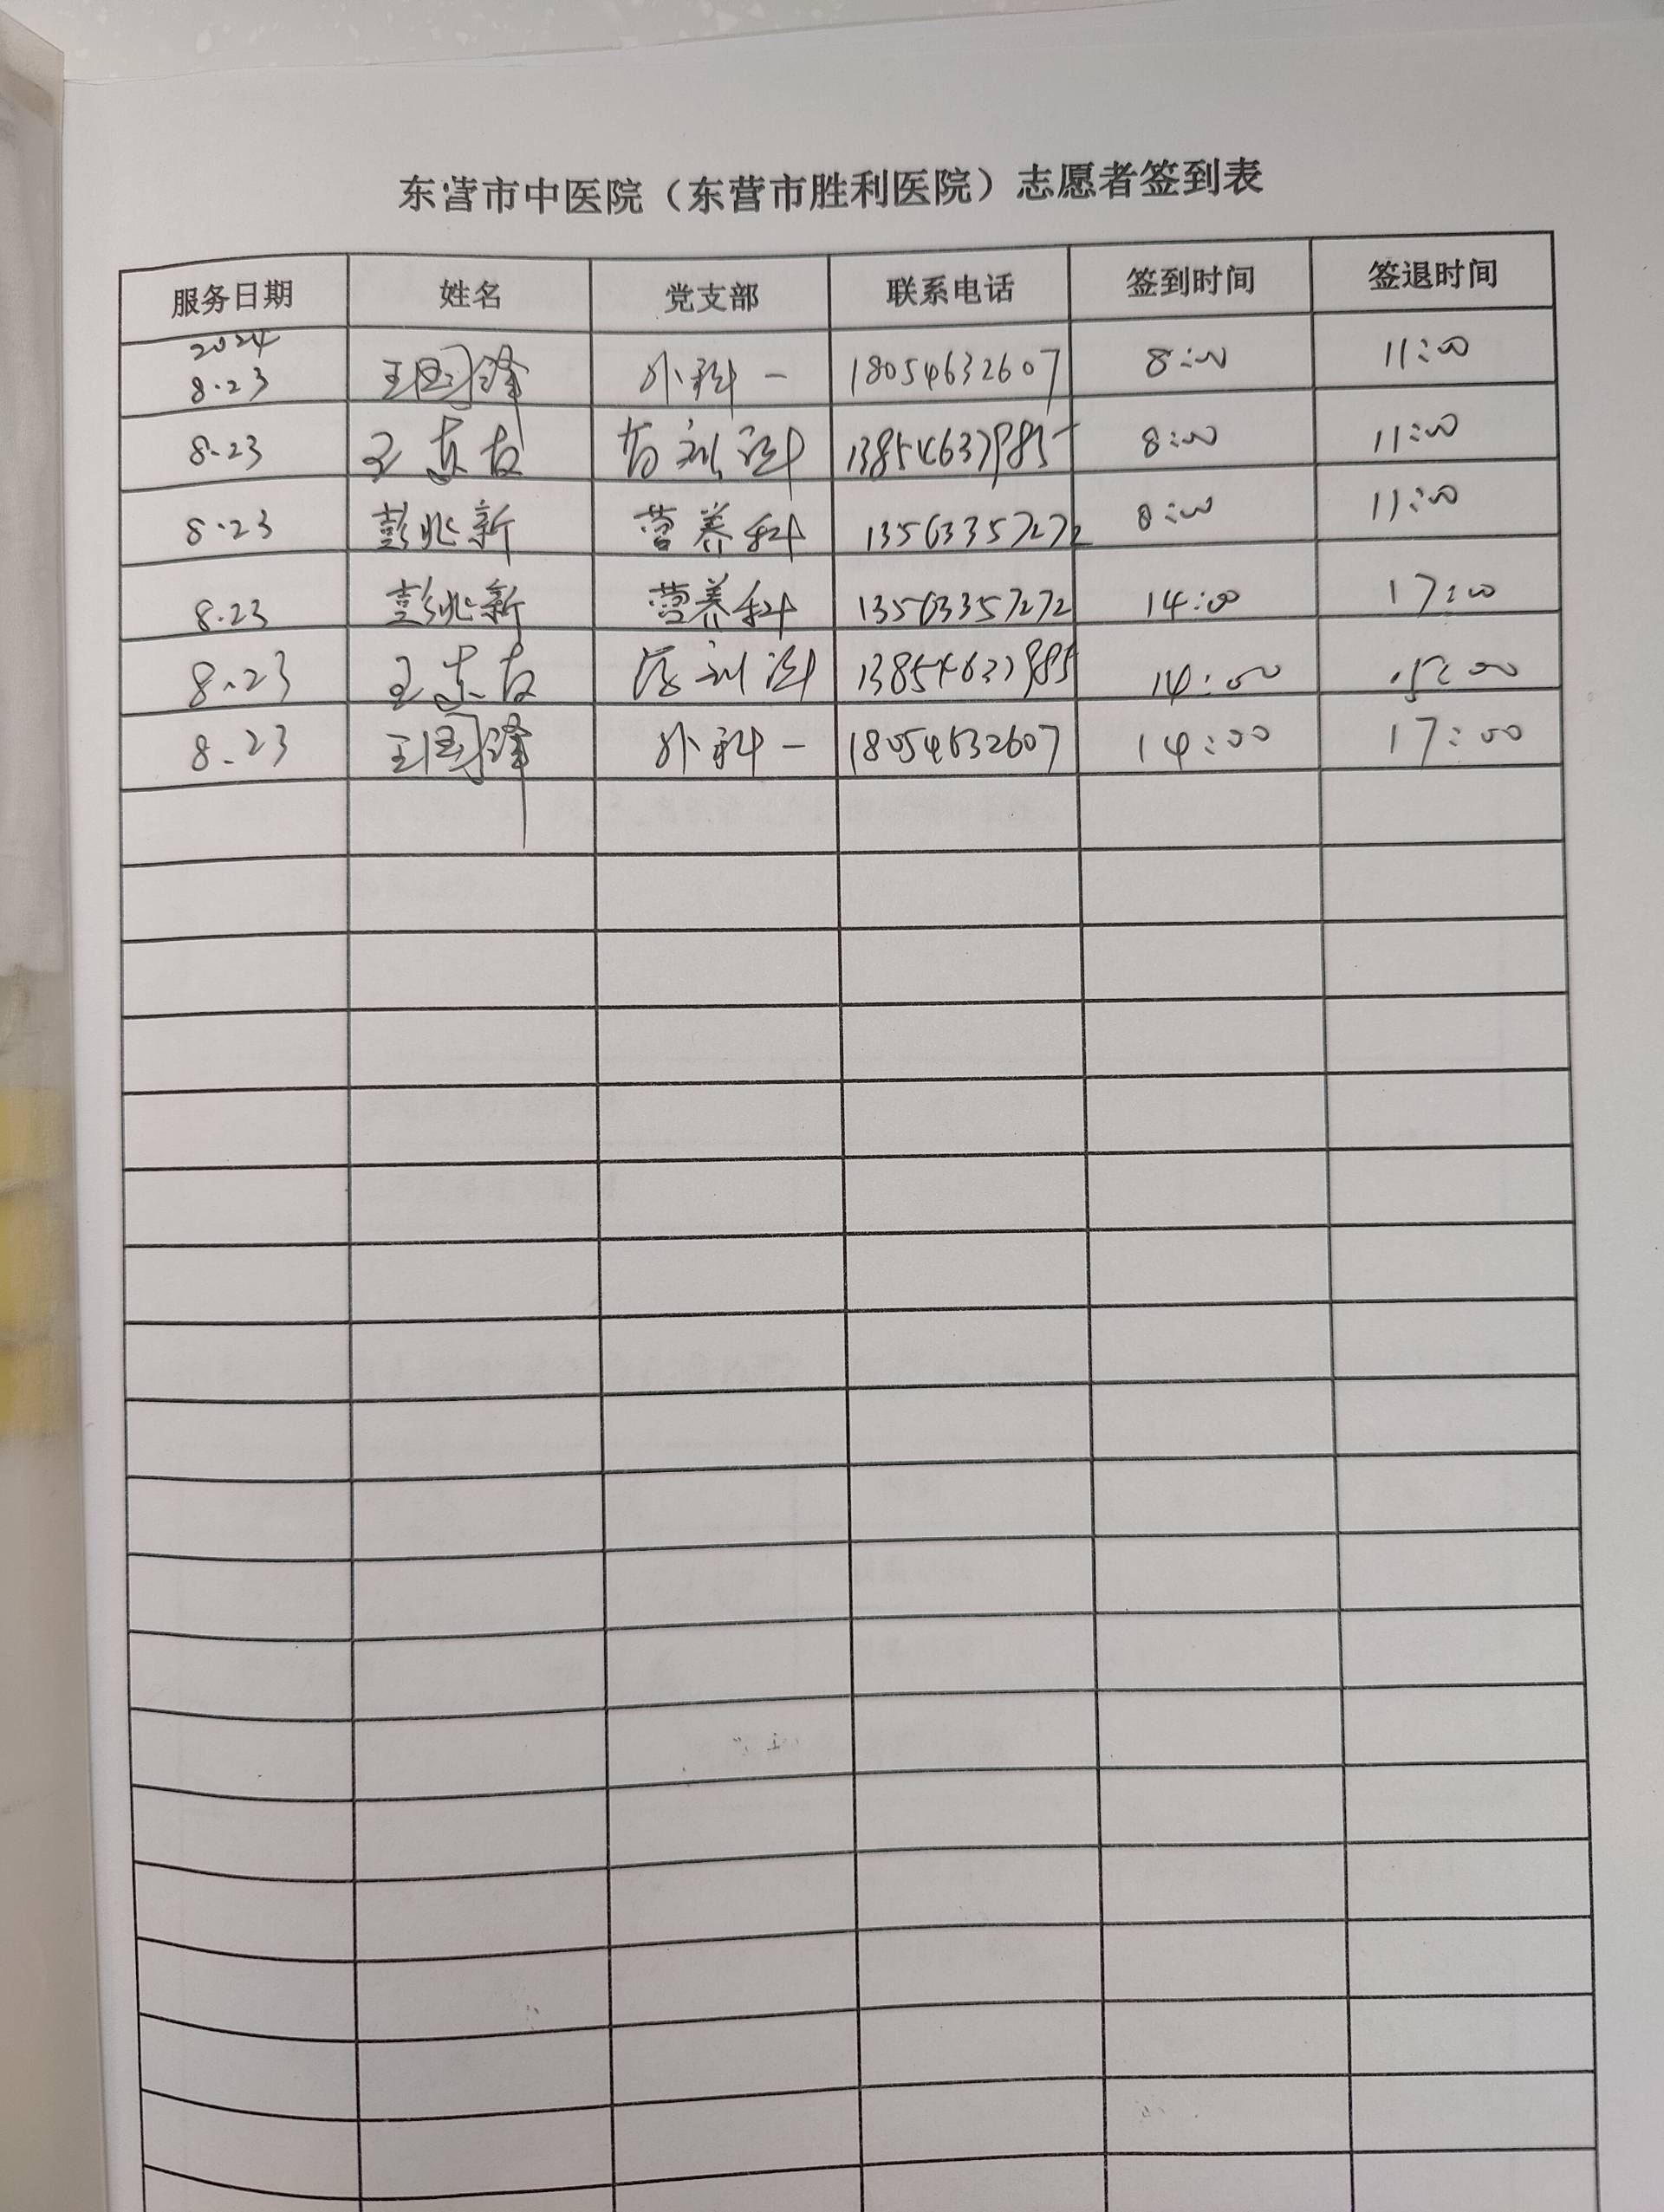 东营市中医院（东营市胜利医院）志愿者签到表
服务日期 姓名 党支部 联系电话 签到时间 签退时间
2024
8.23 王国锋 外科一 18054632607 8:00 11:00
8.23 王 13854637985 8:00 11:00
8.23 彭兆新 营养科 13563357272 8:00 11:00
8.23 彭兆新 营养科 13563357272 14:00 17:00
8.23 王 13854637985 14:00
8.23 王国锋 外科一 18054632607 14:00 17:00